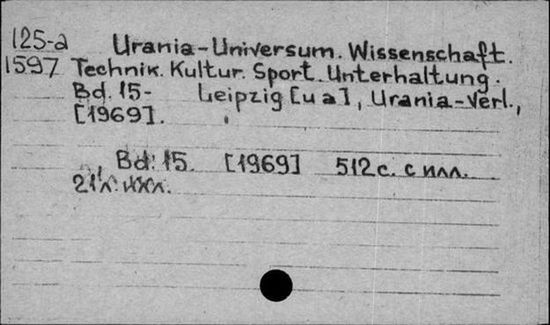 125-а
1597
Urania-Universum. Wissenschaft.
Technik. Kultur. Sport. Unterhaltung.
Bd. 15- Leipzig [u a], Urania-Verl.,
[1969].
Bd. 15. [1969] 512 с. с илл.